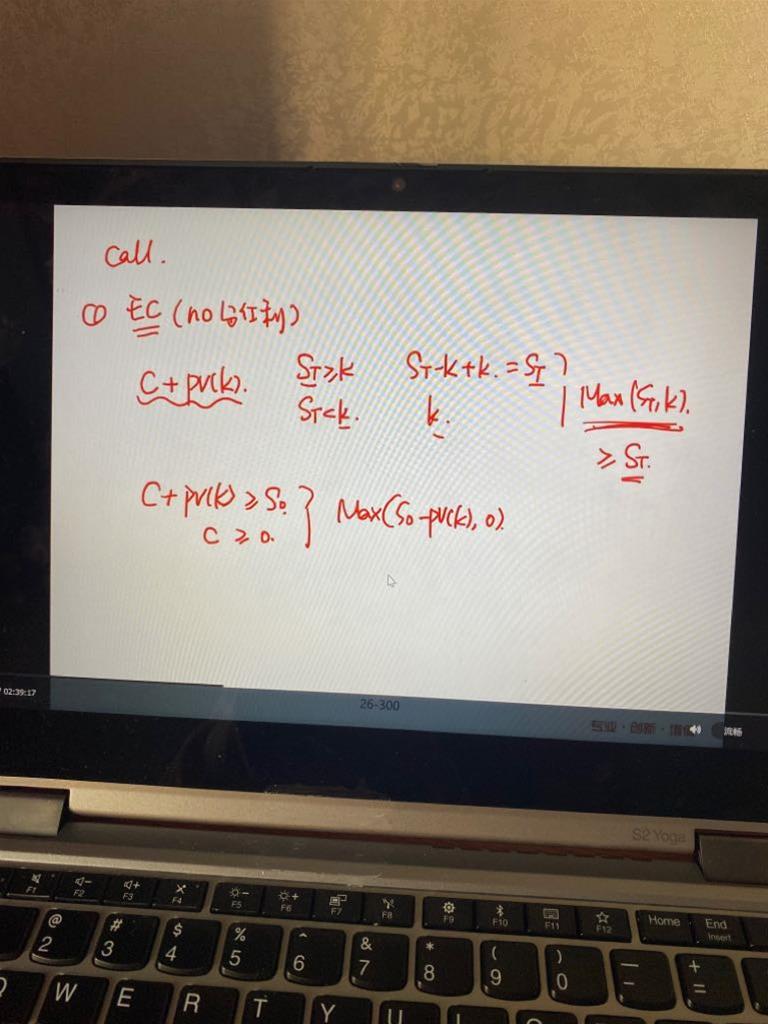 Call.
① EC (no 红利)
C + PV(K). ST ≥ K ST - K + K. = ST
ST < K. K.
Max (ST, K).
≥ ST.
C + PV(K) ≥ S0.
C ≥ 0.
Max(S0 - PV(K), 0).
02:39:17
26-300
专业 · 创新 · 增值
流畅
S2 Yoga
F1 F2 F3 F4 F5 F6 F7 F8 F9 F10 F11 F12 Home End Insert
@ # $ % ^ & * ( ) — +
2 3 4 5 6 7 8 9 0 - =
Q W E R T Y U I O P